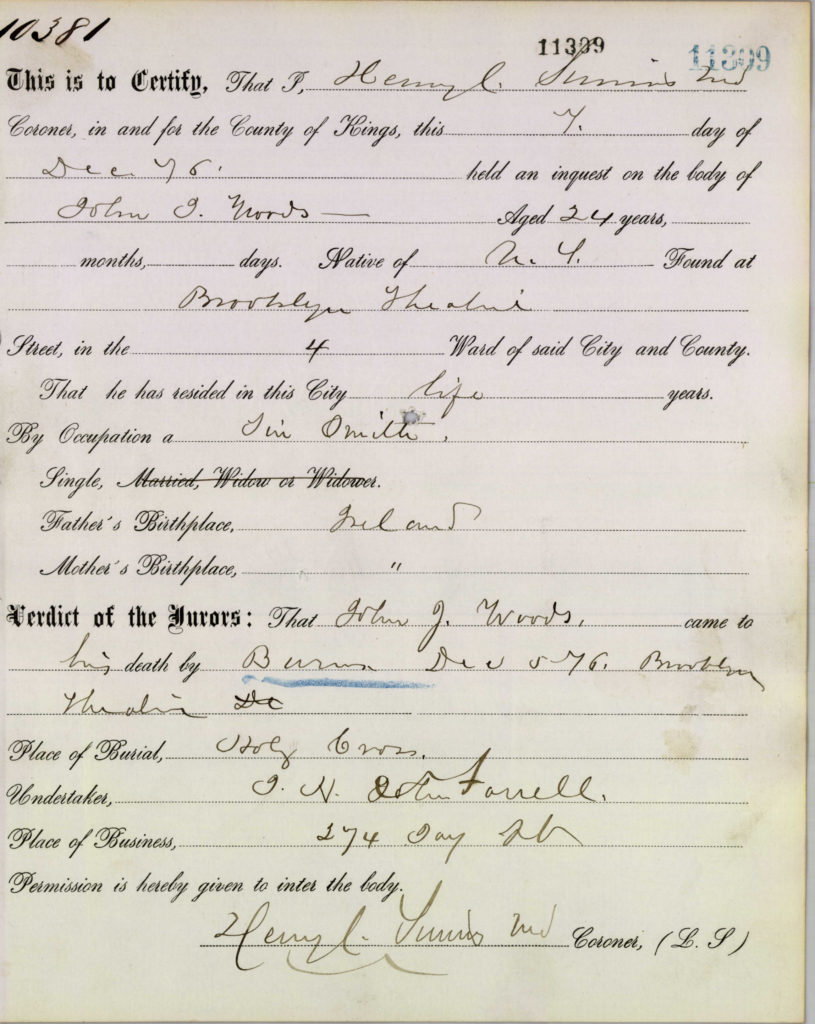 10381
11309 11309
This is to Certify, That I, Henry C. Simms Md
Coroner, in and for the County of Kings, this 7. day of
Dec. 76. held an inquest on the body of
John J. Woods — Aged 24 years,
months, days. Native of N. Y. Found at
Brooklyn Theatre
Street, in the 4 Ward of said City and County.
That he has resided in this City life years.
By Occupation a Tin Smith.
Single, Married, Widow or Widower.
Father's Birthplace, Ireland
Mother's Birthplace, "
Verdict of the Jurors: That John J. Woods. came to
his death by Burns Dec 5 76. Brooklyn
Theatre De
Place of Burial, Holy Cross.
Undertaker, J. N. Farrell.
Place of Business, 274 Jay St
Permission is hereby given to inter the body.
Henry C. Simms Md Coroner, (L. S)